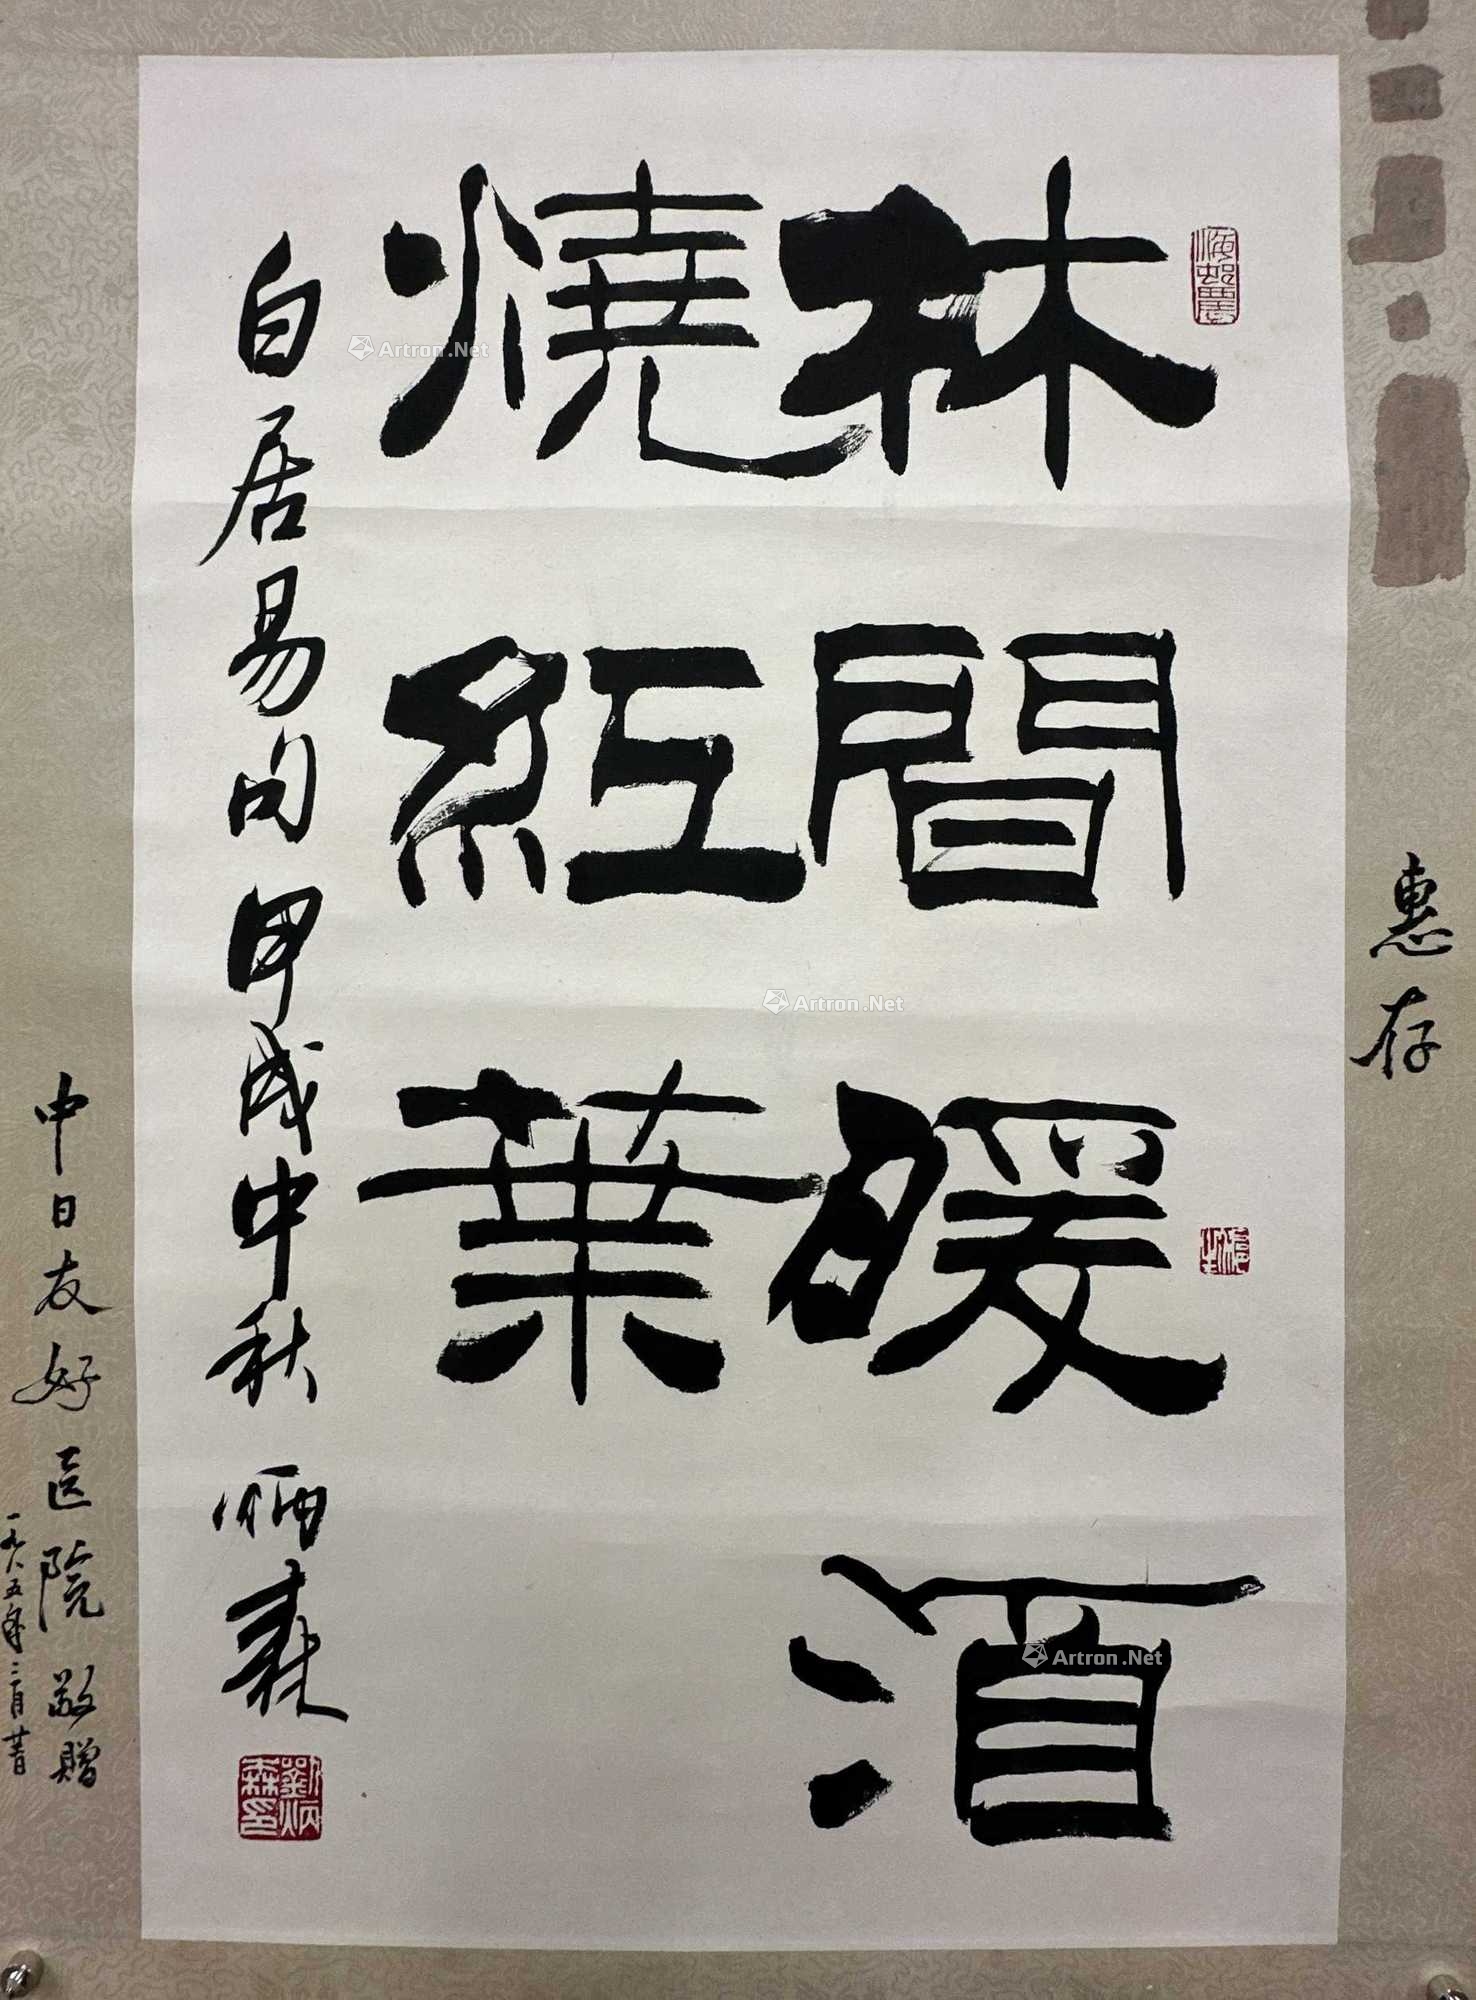 惠存
林間暖酒
燒紅葉
白居易句 甲戌中秋 炳森
劉炳森印
中日友好医院敬贈
一九八五年二月
Artron.Net
Artron.Net
Artron.Net